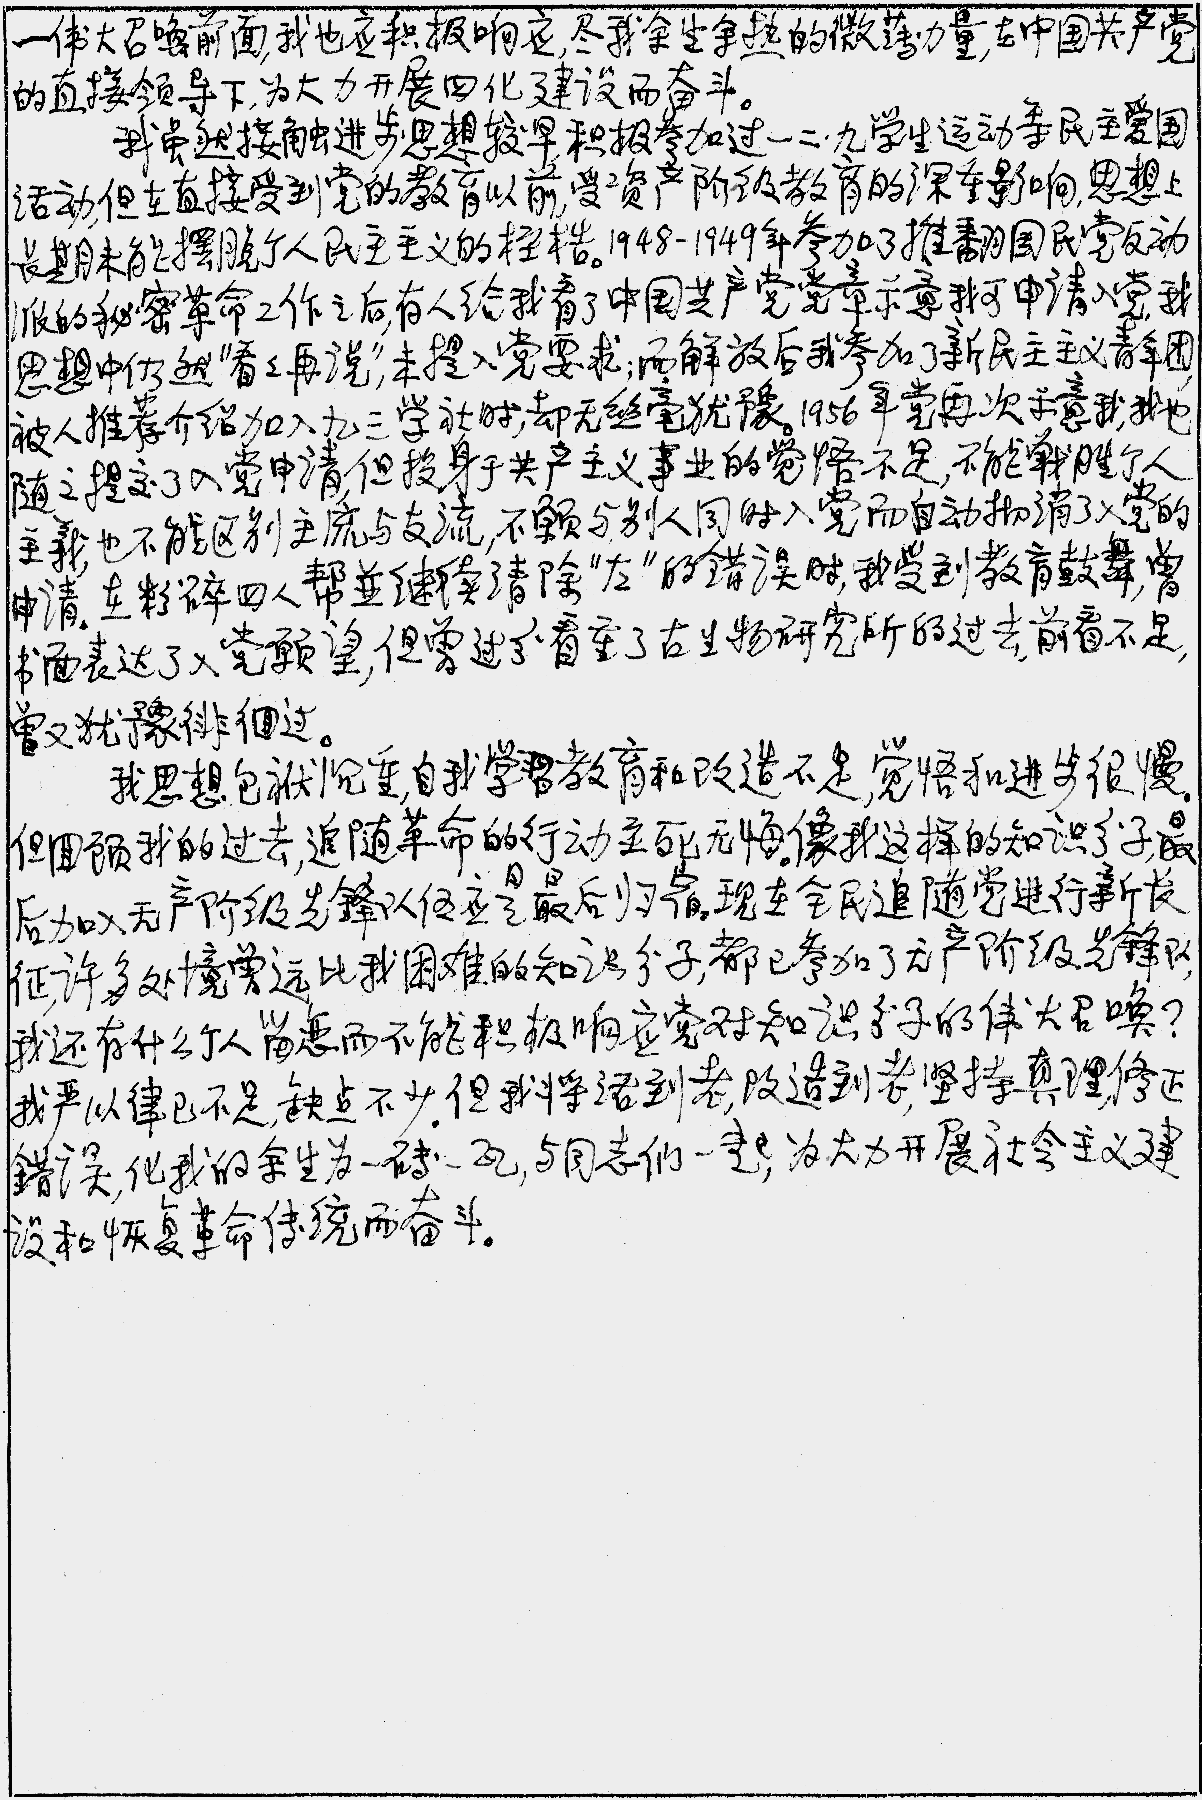 一伟大召唤前面,我也应积极响应,尽我余生余热的微薄力量,在中国共产党
的直接领导下,为大力开展四化建设而奋斗。
我虽然接触进步思想较早,积极参加过一二·九学生运动等民主爱国
活动,但在直接受到党的教育以前,受资产阶级教育的深重影响,思想上
长期未能摆脱个人民主主义的桎梏。1948-1949年参加了推翻国民党反动
派的秘密革命工作之后,有人给我看了中国共产党党章示意我可申请入党,我
思想中仍然“看々再说”,未提入党要求;而解放后我参加了新民主主义青年团,
被人推荐介绍加入九三学社时,却无丝毫犹豫。1956年党再次示意我,我也
随之提交了入党申请,但投身于共产主义事业的觉悟不足,不能战胜个人
主义,也不能区别主流与支流,不愿与别人同时入党而自动打消了入党的
申请。在粉碎四人帮並继续清除“左”的错误时,我受到教育鼓舞,曾
书面表达了入党愿望,但曾过分看重了古生物研究所的过去,前看不足,
曾又犹豫徘徊过。
我思想包袱沉重,自我学习教育和改造不足,觉悟和进步很慢。
但回顾我的过去,追随革命的行动至死无悔。像我这样的知识分子,最
后加入无产阶级先锋队伍应是最后归宿。现在全民追随党进行新长
征,许多处境曾远比我困难的知识分子,都已参加了无产阶级先锋队,
我还有什么个人留恋而不能积极响应党对知识分子的伟大召唤?
我严以律己不足,缺点不少。但我将活到老,改造到老,坚持真理,修正
错误,化我的余生为一砖一瓦,与同志们一起,为大力开展社会主义建
设和恢复革命传统而奋斗。